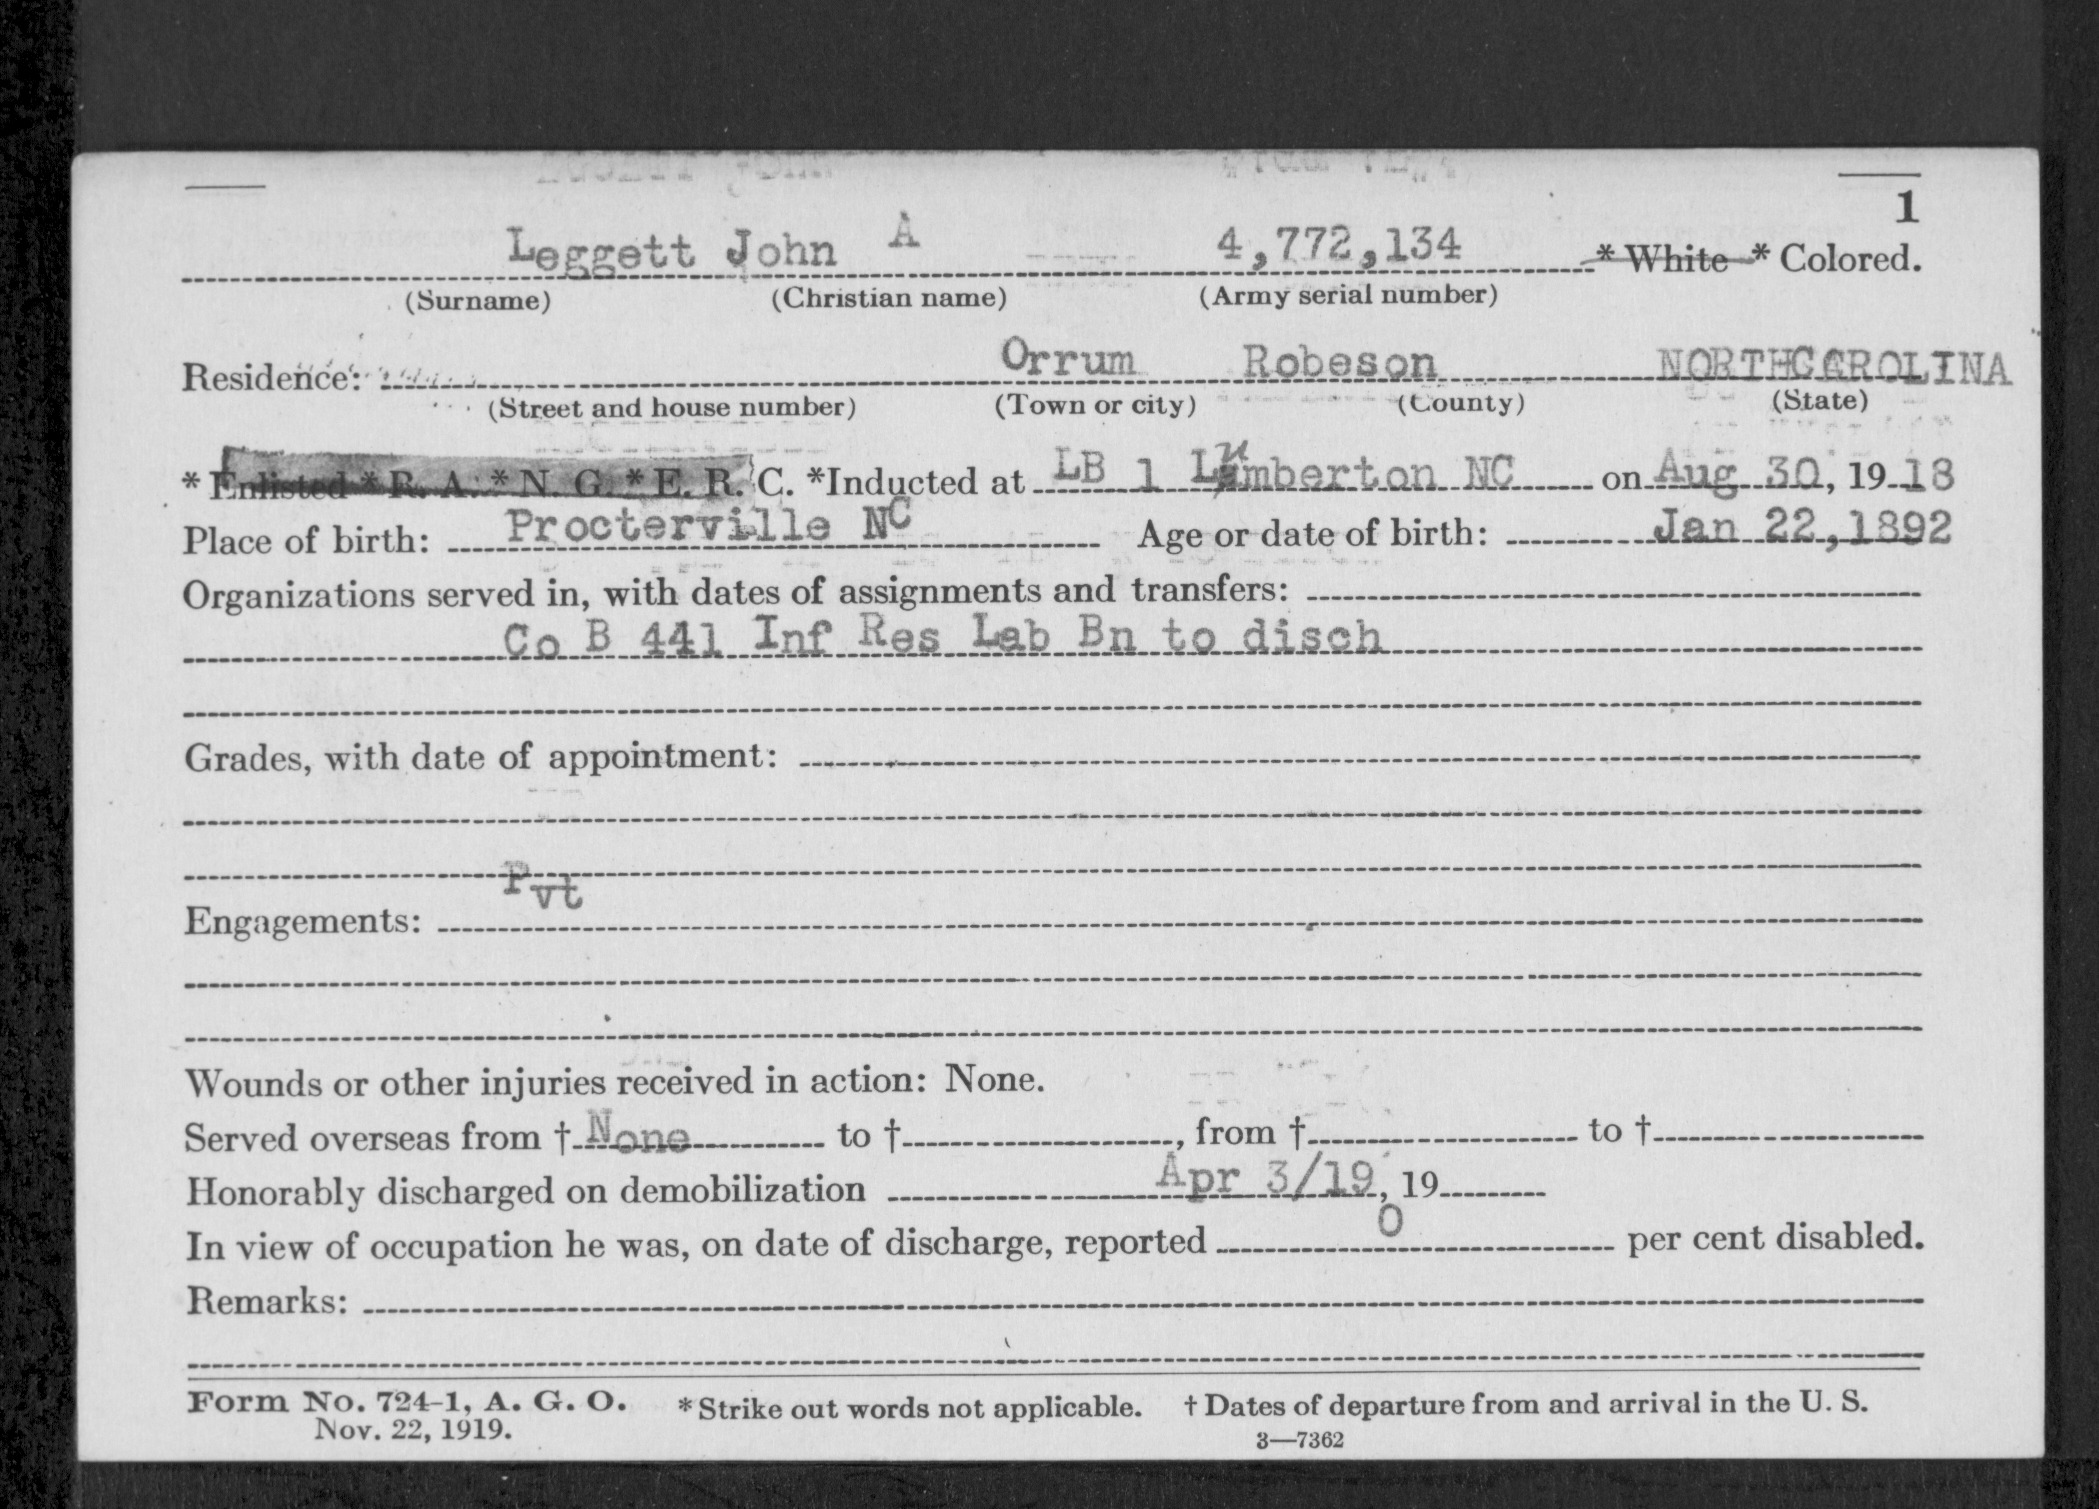 1
Leggett John A 4,772,134 * White * Colored.
(Surname) (Christian name) (Army serial number)
Residence: Orrum Robeson NORTHCAROLINA
(Street and house number) (Town or city) (County) (State)
* Enlisted * R. A. * N. G. * E. R. C. *Inducted at LB 1 Lumberton NC on Aug 30, 19 18
Place of birth: Procterville NC Age or date of birth: Jan 22, 1892
Organizations served in, with dates of assignments and transfers:
Co B 441 Inf Res Lab Bn to disch
Grades, with date of appointment:
Pvt
Engagements:
Wounds or other injuries received in action: None.
Served overseas from † None to † , from † to †
Honorably discharged on demobilization Apr 3/19, 19
In view of occupation he was, on date of discharge, reported 0 per cent disabled.
Remarks:
Form No. 724-1, A. G. O. *Strike out words not applicable. † Dates of departure from and arrival in the U. S.
Nov. 22, 1919. 3—7362